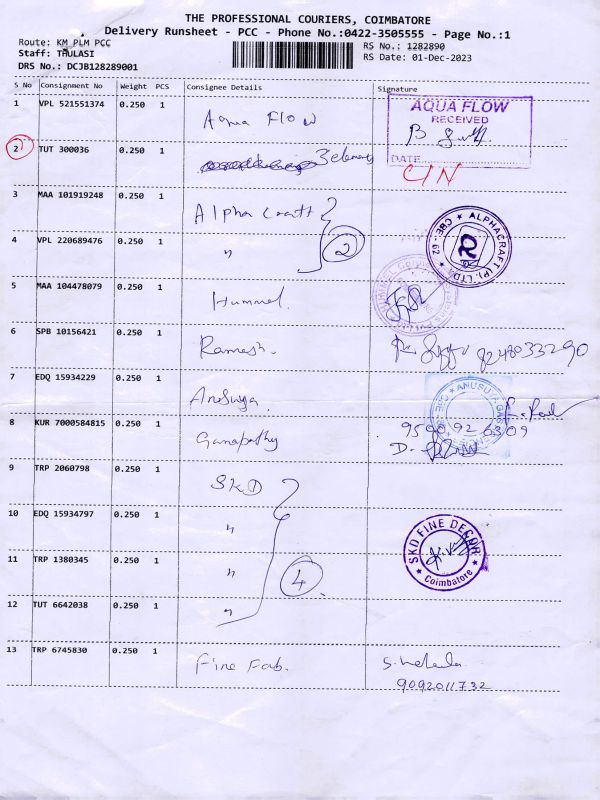 THE PROFESSIONAL COURIERS, COIMBATORE
Delivery Runsheet - PCC - Phone No.:0422-3505555 - Page No.:1
Route: KM PLM PCC
RS No.: 1282890
Staff: THULASI
RS Date: 01-Dec-2023
DRS No.: DCJB128289001
S No Consignment No Weight PCS Consignee Details Signature
1 VPL 521551374 0.250 1 Aqua Flow
AQUA FLOW
RECEIVED
DATE
2 TUT 300036 0.250 1
C/N
3 MAA 101919248 0.250 1 Alpha Craft
ALPHACRAFT (P) LTD. CBE-29
4 VPL 220689476 0.250 1 " 2
5 MAA 104478079 0.250 1 Hummel
6 SPB 10156421 0.250 1 Ramesh. 9248033290
7 EDQ 15934229 0.250 1 Anusuya.
8 KUR 7000584815 0.250 1 Ganapathy 9500926309
9 TRP 2060798 0.250 1 SKD
10 EDQ 15934797 0.250 1 "
SKD FINE DECOR
Coimbatore
11 TRP 1380345 0.250 1 " 4
12 TUT 6642038 0.250 1 "
13 TRP 6745830 0.250 1 Fine Fab.
9092011732